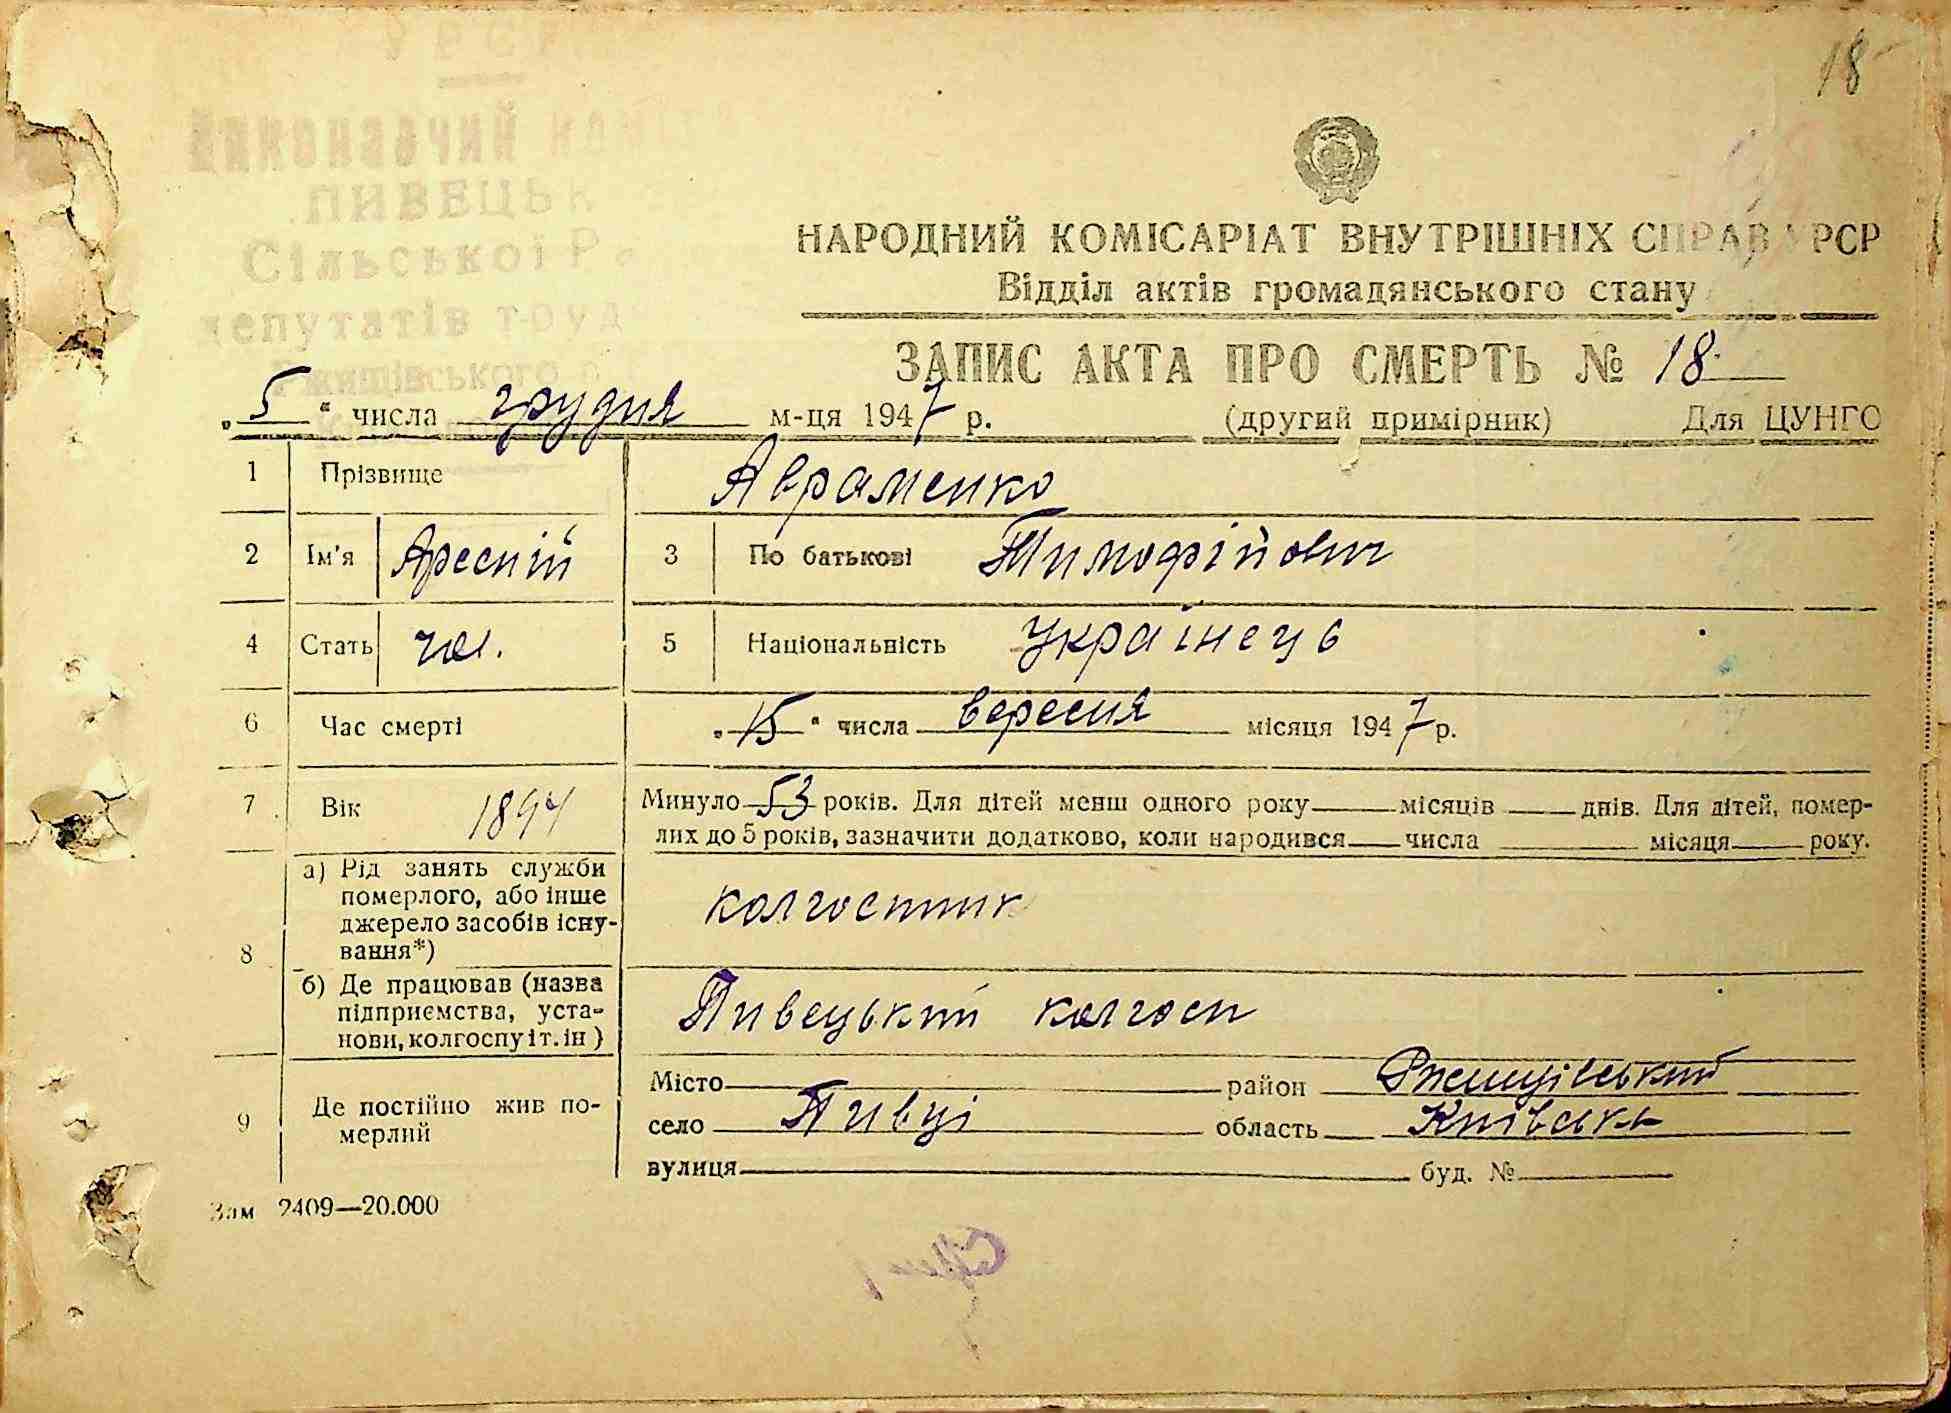 18
УРСР
Виконавчий
ПИВЕЦЬК
Сільської Р
депутатів труд
Ржищівського
НАРОДНИЙ КОМІСАРІАТ ВНУТРІШНІХ СПРАВ УРСР
Відділ актів громадянського стану
ЗАПИС АКТА ПРО СМЕРТЬ № 18
„5“ числа грудня м-ця 1947 р. (другий примірник) Для ЦУНГО
1 Прізвище Авраменко
2 Ім'я Аресній 3 По батькові Тимофійович
4 Стать чол. 5 Національність Українець
6 Час смерті „15“ числа вересня місяця 1947 р.
7 Вік 1894 Минуло 53 років. Для дітей менш одного року місяців днів. Для дітей, помер-
лих до 5 років, зазначити додатково, коли народився числа місяця року.
8 а) Рід занять служби
померлого, або інше
джерело засобів існу-
вання*)
колгоспник
б) Де працював (назва
підприємства, уста-
нови, колгоспу і т. ін)
Пивецький колгосп
9 Де постійно жив по-
мерлий
Місто район Ржищівський
село Пивці область Київськ
вулиця буд. №
Зам 2409—20.000